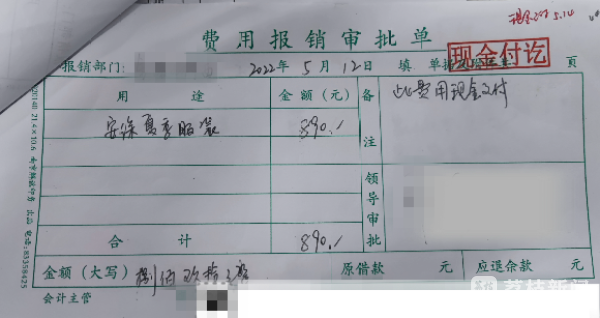 现金付 5.14
费用报销审批单
现金付讫
报销部门: 2022年 5月 12日 填 单据 页
用 途 金 额（元） 备注
安保夏季服装 890./ 此费用现金支付
领导审批
合 计 890./
金额（大写） 捌佰玖拾元 原借款 元 应退余款 元
会计主管
荔枝新闻